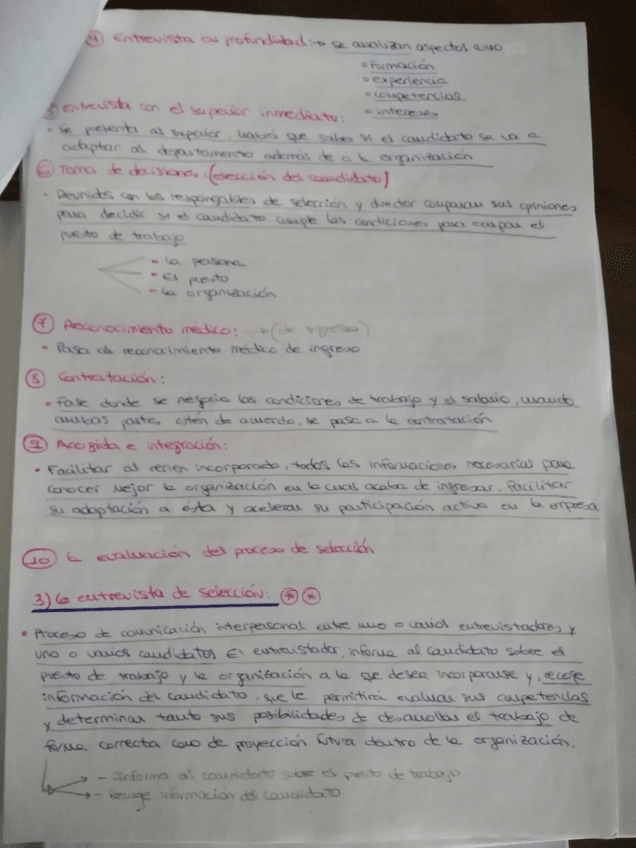 ④ Entrevista en profundidad: → se analizan aspectos como
• formación
• experiencia
• competencias
• intereses
⑤ Entrevista con el superior inmediato:
• Se presenta al superior, habrá que saber si el candidato se va a
adaptar al departamento además de a la organización
⑥ Toma de decisiones: (elección del candidato)
• Reunidos con los responsables de selección y director comparan sus opiniones
para decidir si el candidato cumple las condiciones para ocupar el
puesto de trabajo
- La persona
- El puesto
- La organización
⑦ Reconocimiento médico: → (de ingreso)
• Pasa al reconocimiento médico de ingreso
⑧ Contratación:
• Fase donde se negocia las condiciones de trabajo y el salario, cuando
ambas partes estén de acuerdo, se pasa a la contratación
⑨ Acogida e integración:
• Facilitar al recien incorporado, todas las informaciones necesarias para
conocer mejor la organización en la cual acaba de ingresar. Facilitar
su adaptación a ésta y acelerar su participación activa en la empresa
⑩ La evaluación del proceso de selección
3) La entrevista de selección: ⊛ ⊛
• Proceso de comunicación interpersonal entre uno o varios entrevistadores y
uno o varios candidatos El entrevistador, informa al candidato sobre el
puesto de trabajo y la organización a la que desea incorporarse y, recoge
información del candidato, que le permitirá evaluar sus competencias
y determinar tanto sus posibilidades de desarrollar el trabajo de
forma correcta como de proyección futura dentro de la organización.
→ - Informa al candidato sobre el puesto de trabajo
→ - Recoge información del candidato